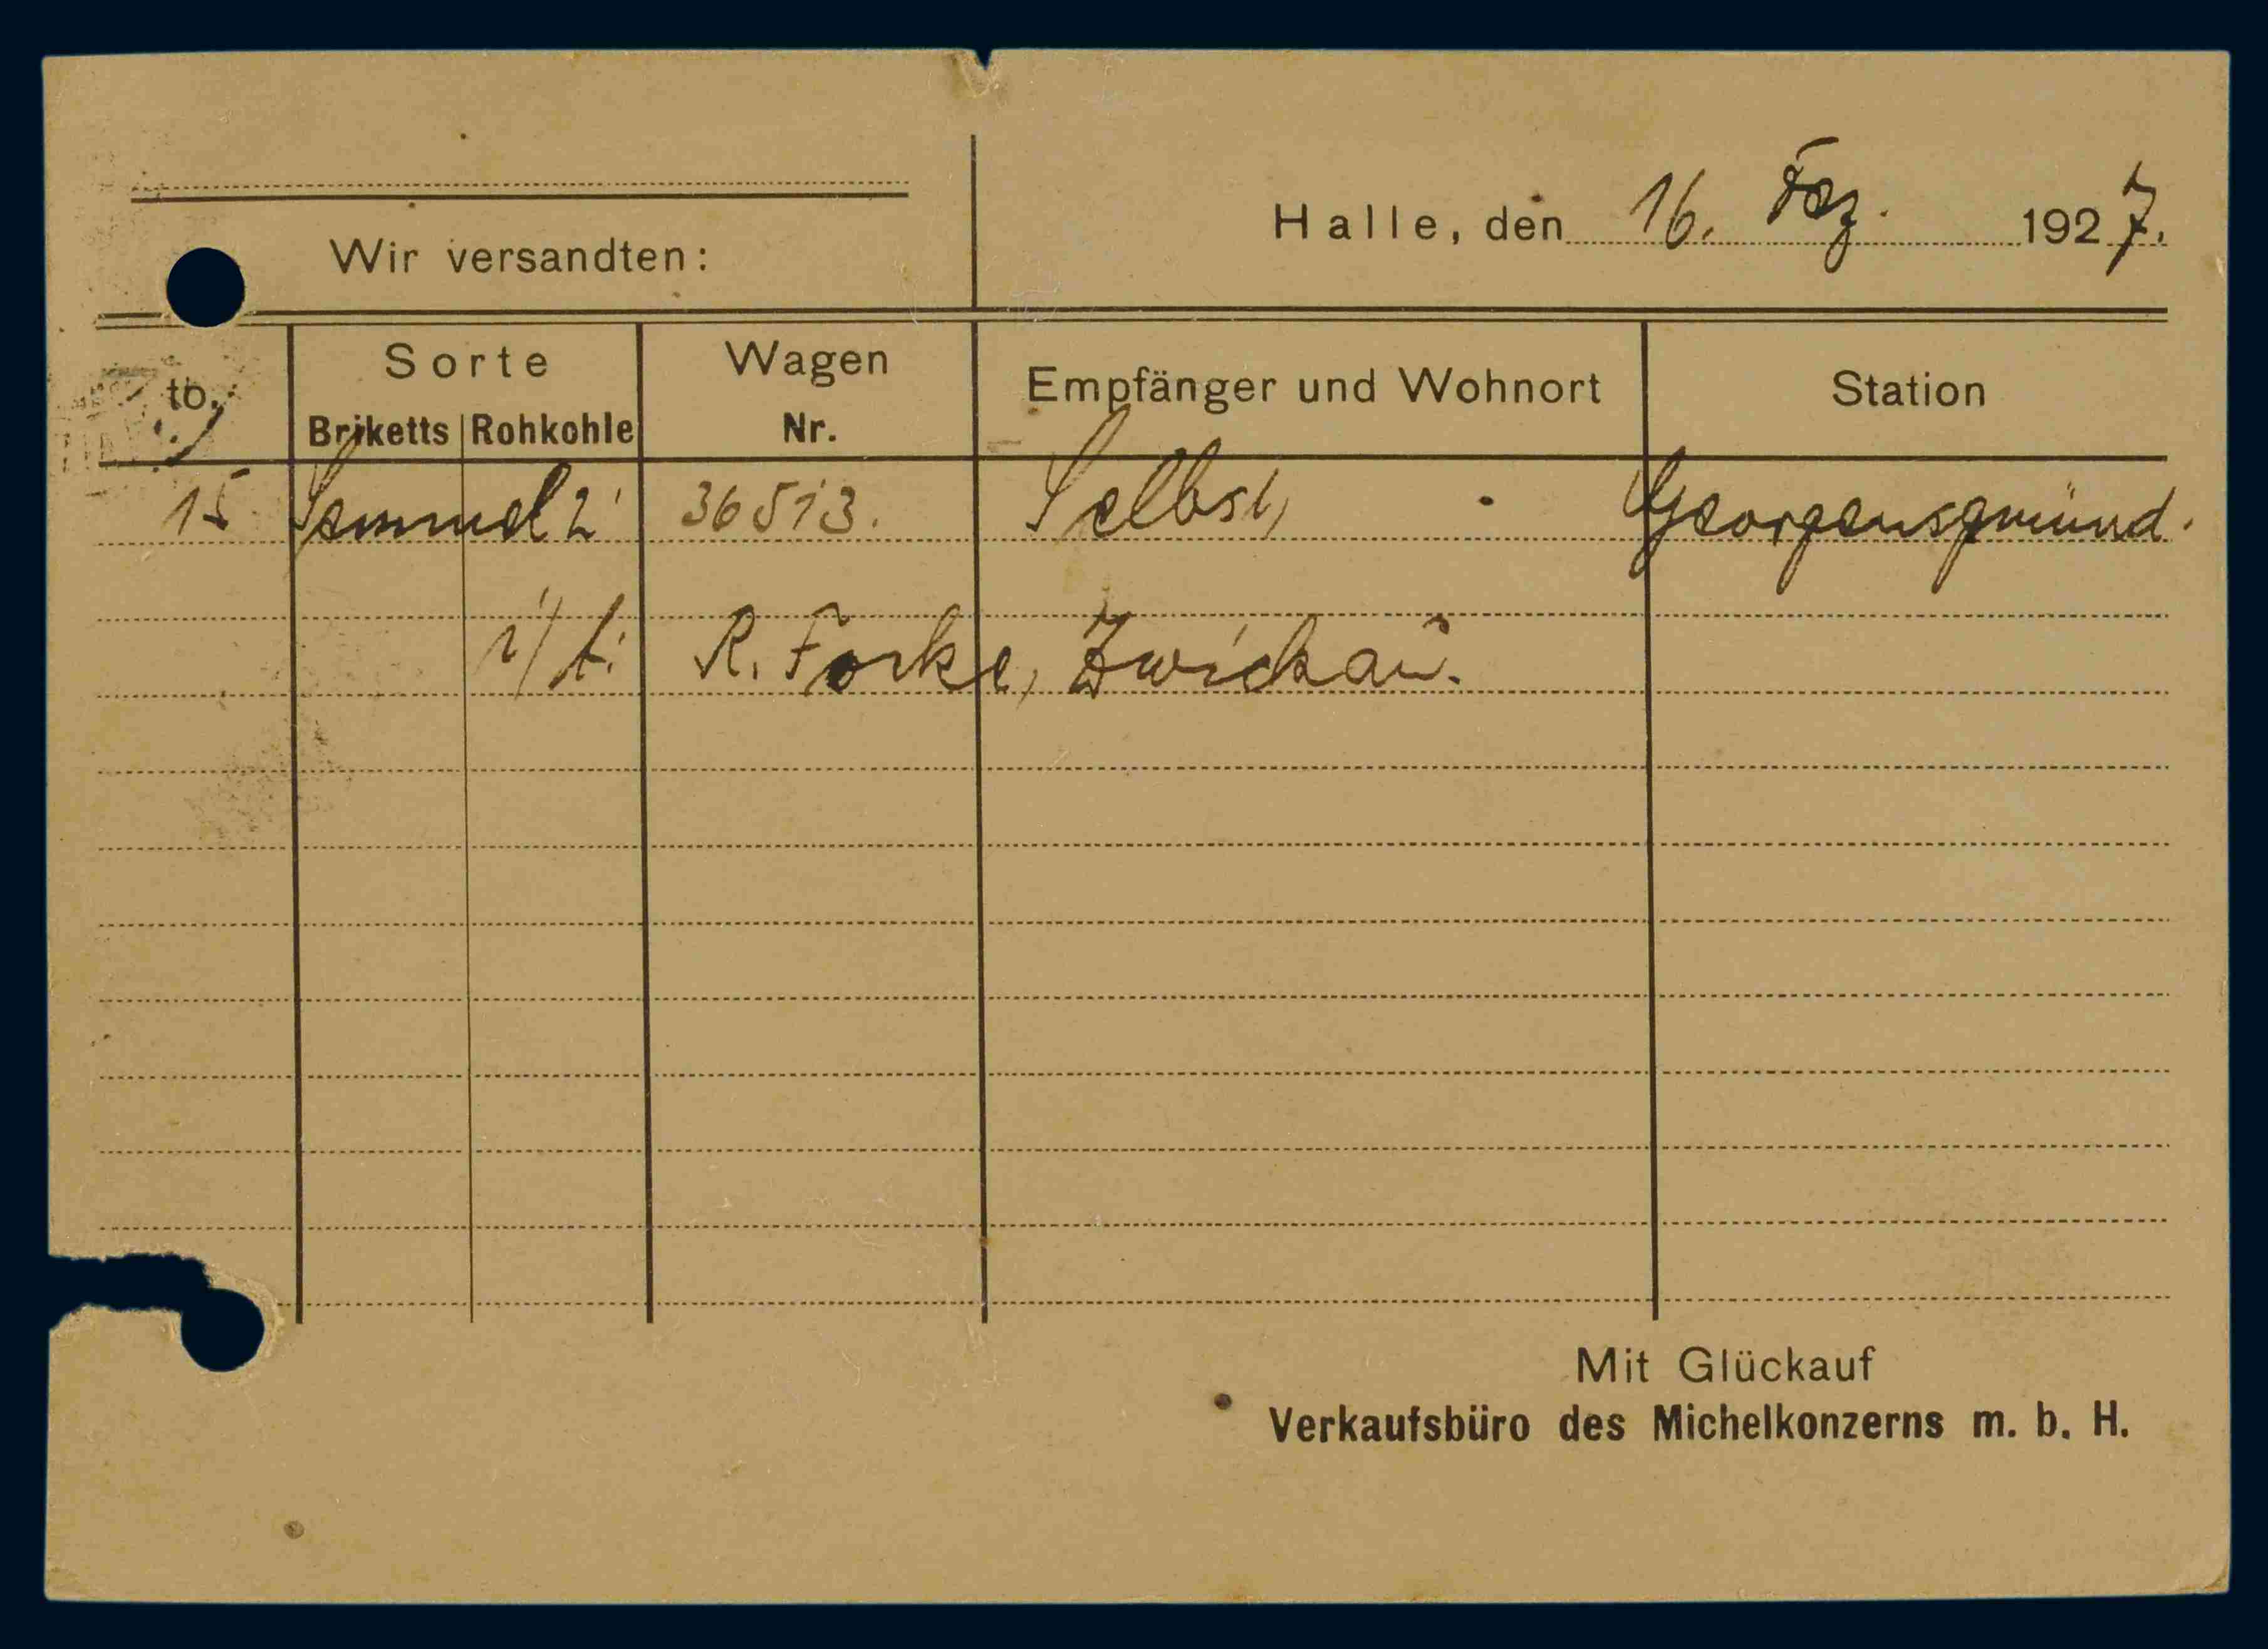 Halle, den 16. Dez. 1927.
Wir versandten:
to. Sorte Wagen Empfänger und Wohnort Station
Briketts Rohkohle Nr.
15 Semmel 2 36513. Selbst, Georgensgmünd.
R. Forke, Zwickau.
Mit Glückauf
Verkaufsbüro des Michelkonzerns m. b. H.